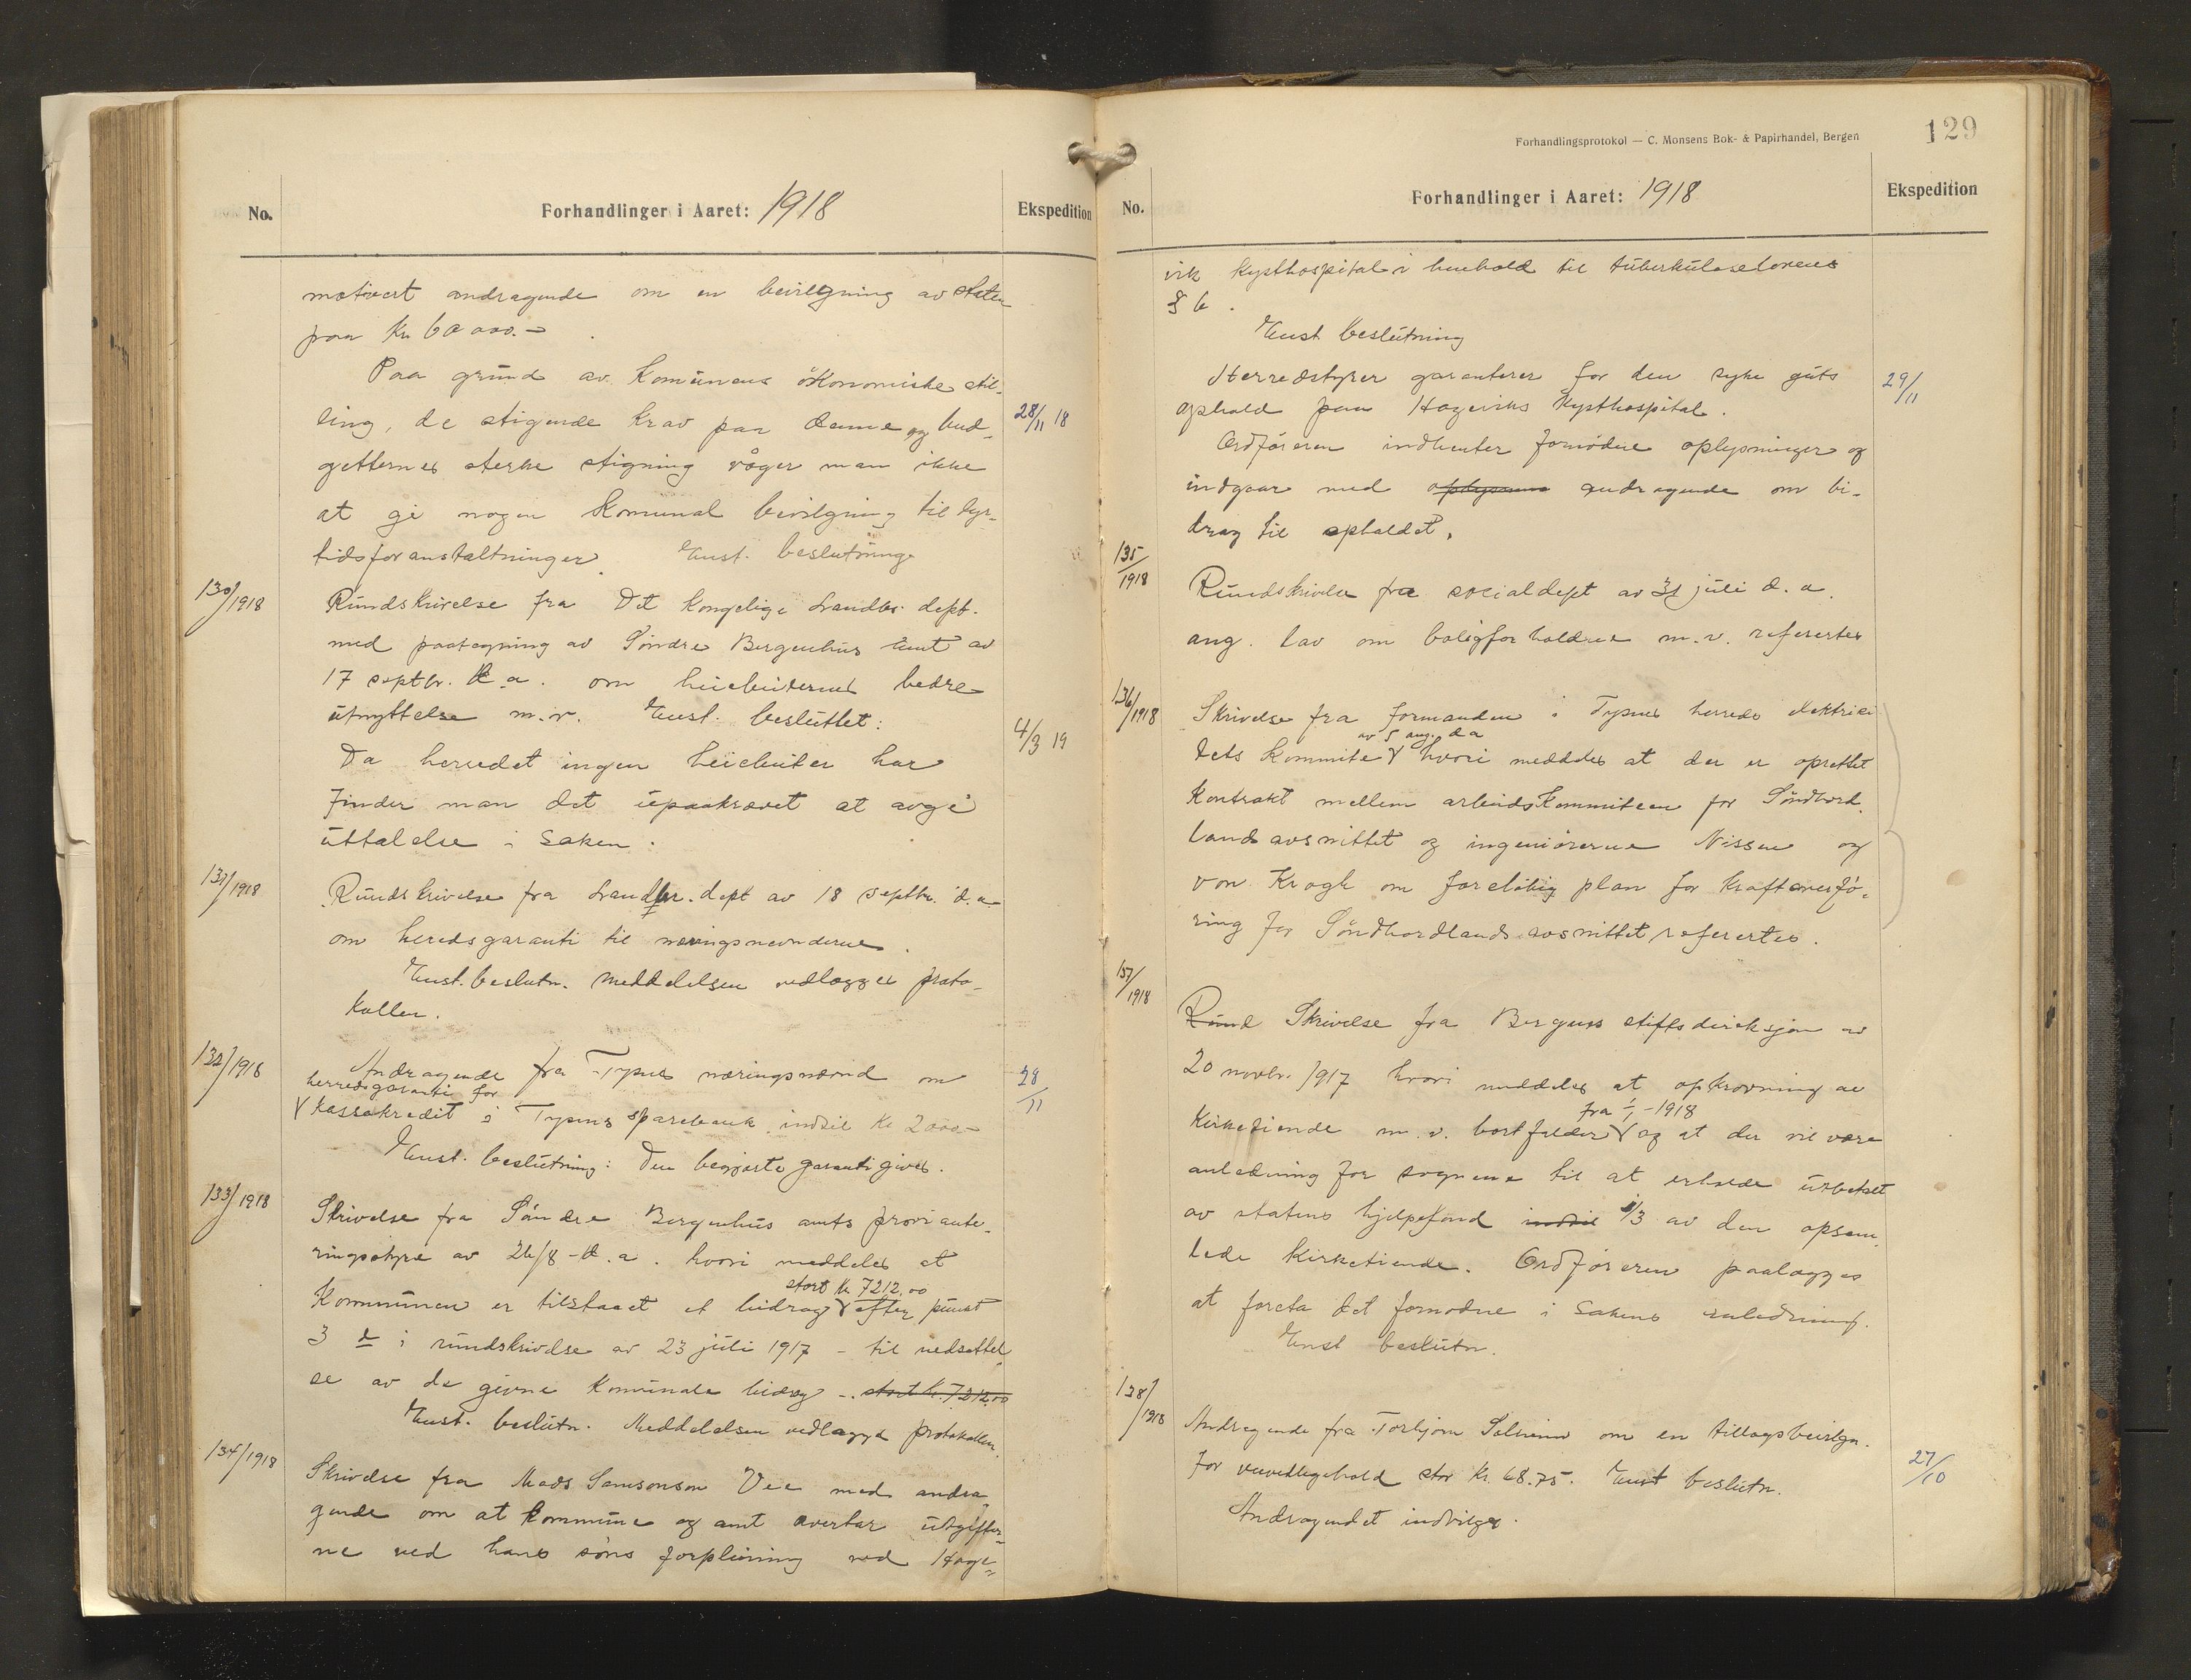 No.
Forhandlinger i Aaret: 1918
Ekspedition
motivert andragende om en bevilgning av staten
paa Kr. 60000.-
Paa grund av Komunens økonomiske stil-
ling, de stigende krav paa denne og bud-
28/11 18
getternes sterke stigning våger man ikke
at gi nogen komunal bevilgning til dyr-
tidsforanstaltninger. Enst. beslutning.
130/1918
Rundskrivelse fra Det kongelige Landbr. dept.
med paategning av Söndre Bergenhus amt av
17 septbr. d.a. om heiebeiternes bedre
utnyttelse m.v. Enst. besluttet:
4/3 19
Da herredet ingen heiebeiter har
finder man det upaakrævet at avgi
uttalelse i saken.
131/1918
Rundskrivelse fra Landbr. dept av 18 septbr. d.a.
om heredsgaranti til næringsnevnderne.
Enst. beslutn. Meddelelsen vedlægges proto-
kollen.
132/1918
Andragende fra Tysnes næringsnævnd om
28/11
herredsgaranti for
Kassakredit i Tysnes sparebank indtil kr 2000-
Enst. beslutning: Den begjærte garanti gives.
133/1918
Skrivelse fra Söndre Bergenhus amts proviante-
ringsstyre av 26/8 - d.a. hvori meddeles at
stort kr. 7212.00
Kommunen er tilstaaet et bidrag efter punkt
3 e i rundskrivelse av 23 juli 1917 - til nedsættel
se av de givne komunale bidrag - stort kr. 7212.00
Enst. beslutn. Meddelelsen vedlægges protokollen.
134/1918
Skrivelse fra Mads Samsonson Vee med andra-
gende om at kommune og amt overtar utgifter-
ne ved hans söns forpleining ved Hage-
Forhandlingsprotokol — C. Monsens Bok- & Papirhandel, Bergen
129
No.
Forhandlinger i Aaret: 1918
Ekspedition
vik Kysthospital i henhold til tuberkuloselovens
§ 6.
Enst beslutning
Herredstyret garanterer for den syke guts
29/11
ophold paa Hageviks Kysthospital.
Ordföreren indhenter fornödne oplysninger og
indgaar med oplysning andragende om bi-
drag til opholdet.
135/1918
Rundskrivelse fra socialdept av 31 juli d.a.
ang. lov om boligforholdene m.v. refertes
136/1918
Skrivelse fra formanden i Tysnes herreds elektrici
av 5 aug. d.a
tets kommite hvori meddeles at der er oprettet
kontrakt mellem arbeidskommiteen for Söndhord-
landsavsnittet og ingeniörerne Nissen og
von Krogh om foreløbig plan for kraftoverfö-
ring for Söndhordlands avsnittet refertes.
137/1918
Rund Skrivelse fra Bergens stiftsdireksjon av
20 novbr. 1917 hvori meddeles at opkrævning av
fra 1/1 - 1918
Kirketiende m.v. bortfalder og at der vil være
anledning for sognene til at erholde utbetalt
av statens hjelpefond indtil 1/3 av den opsam-
lede kirketiende. Ordföreren paalægges
at foreta det fornødne i sakens anledning.
Enst beslutn.
138/1918
Andragende fra Torbjörn Solheim om en tillægsbevilgn.
for veivedligehold stor Kr. 68.75. Enst beslutn.
27/10
Andragendet indvilges.